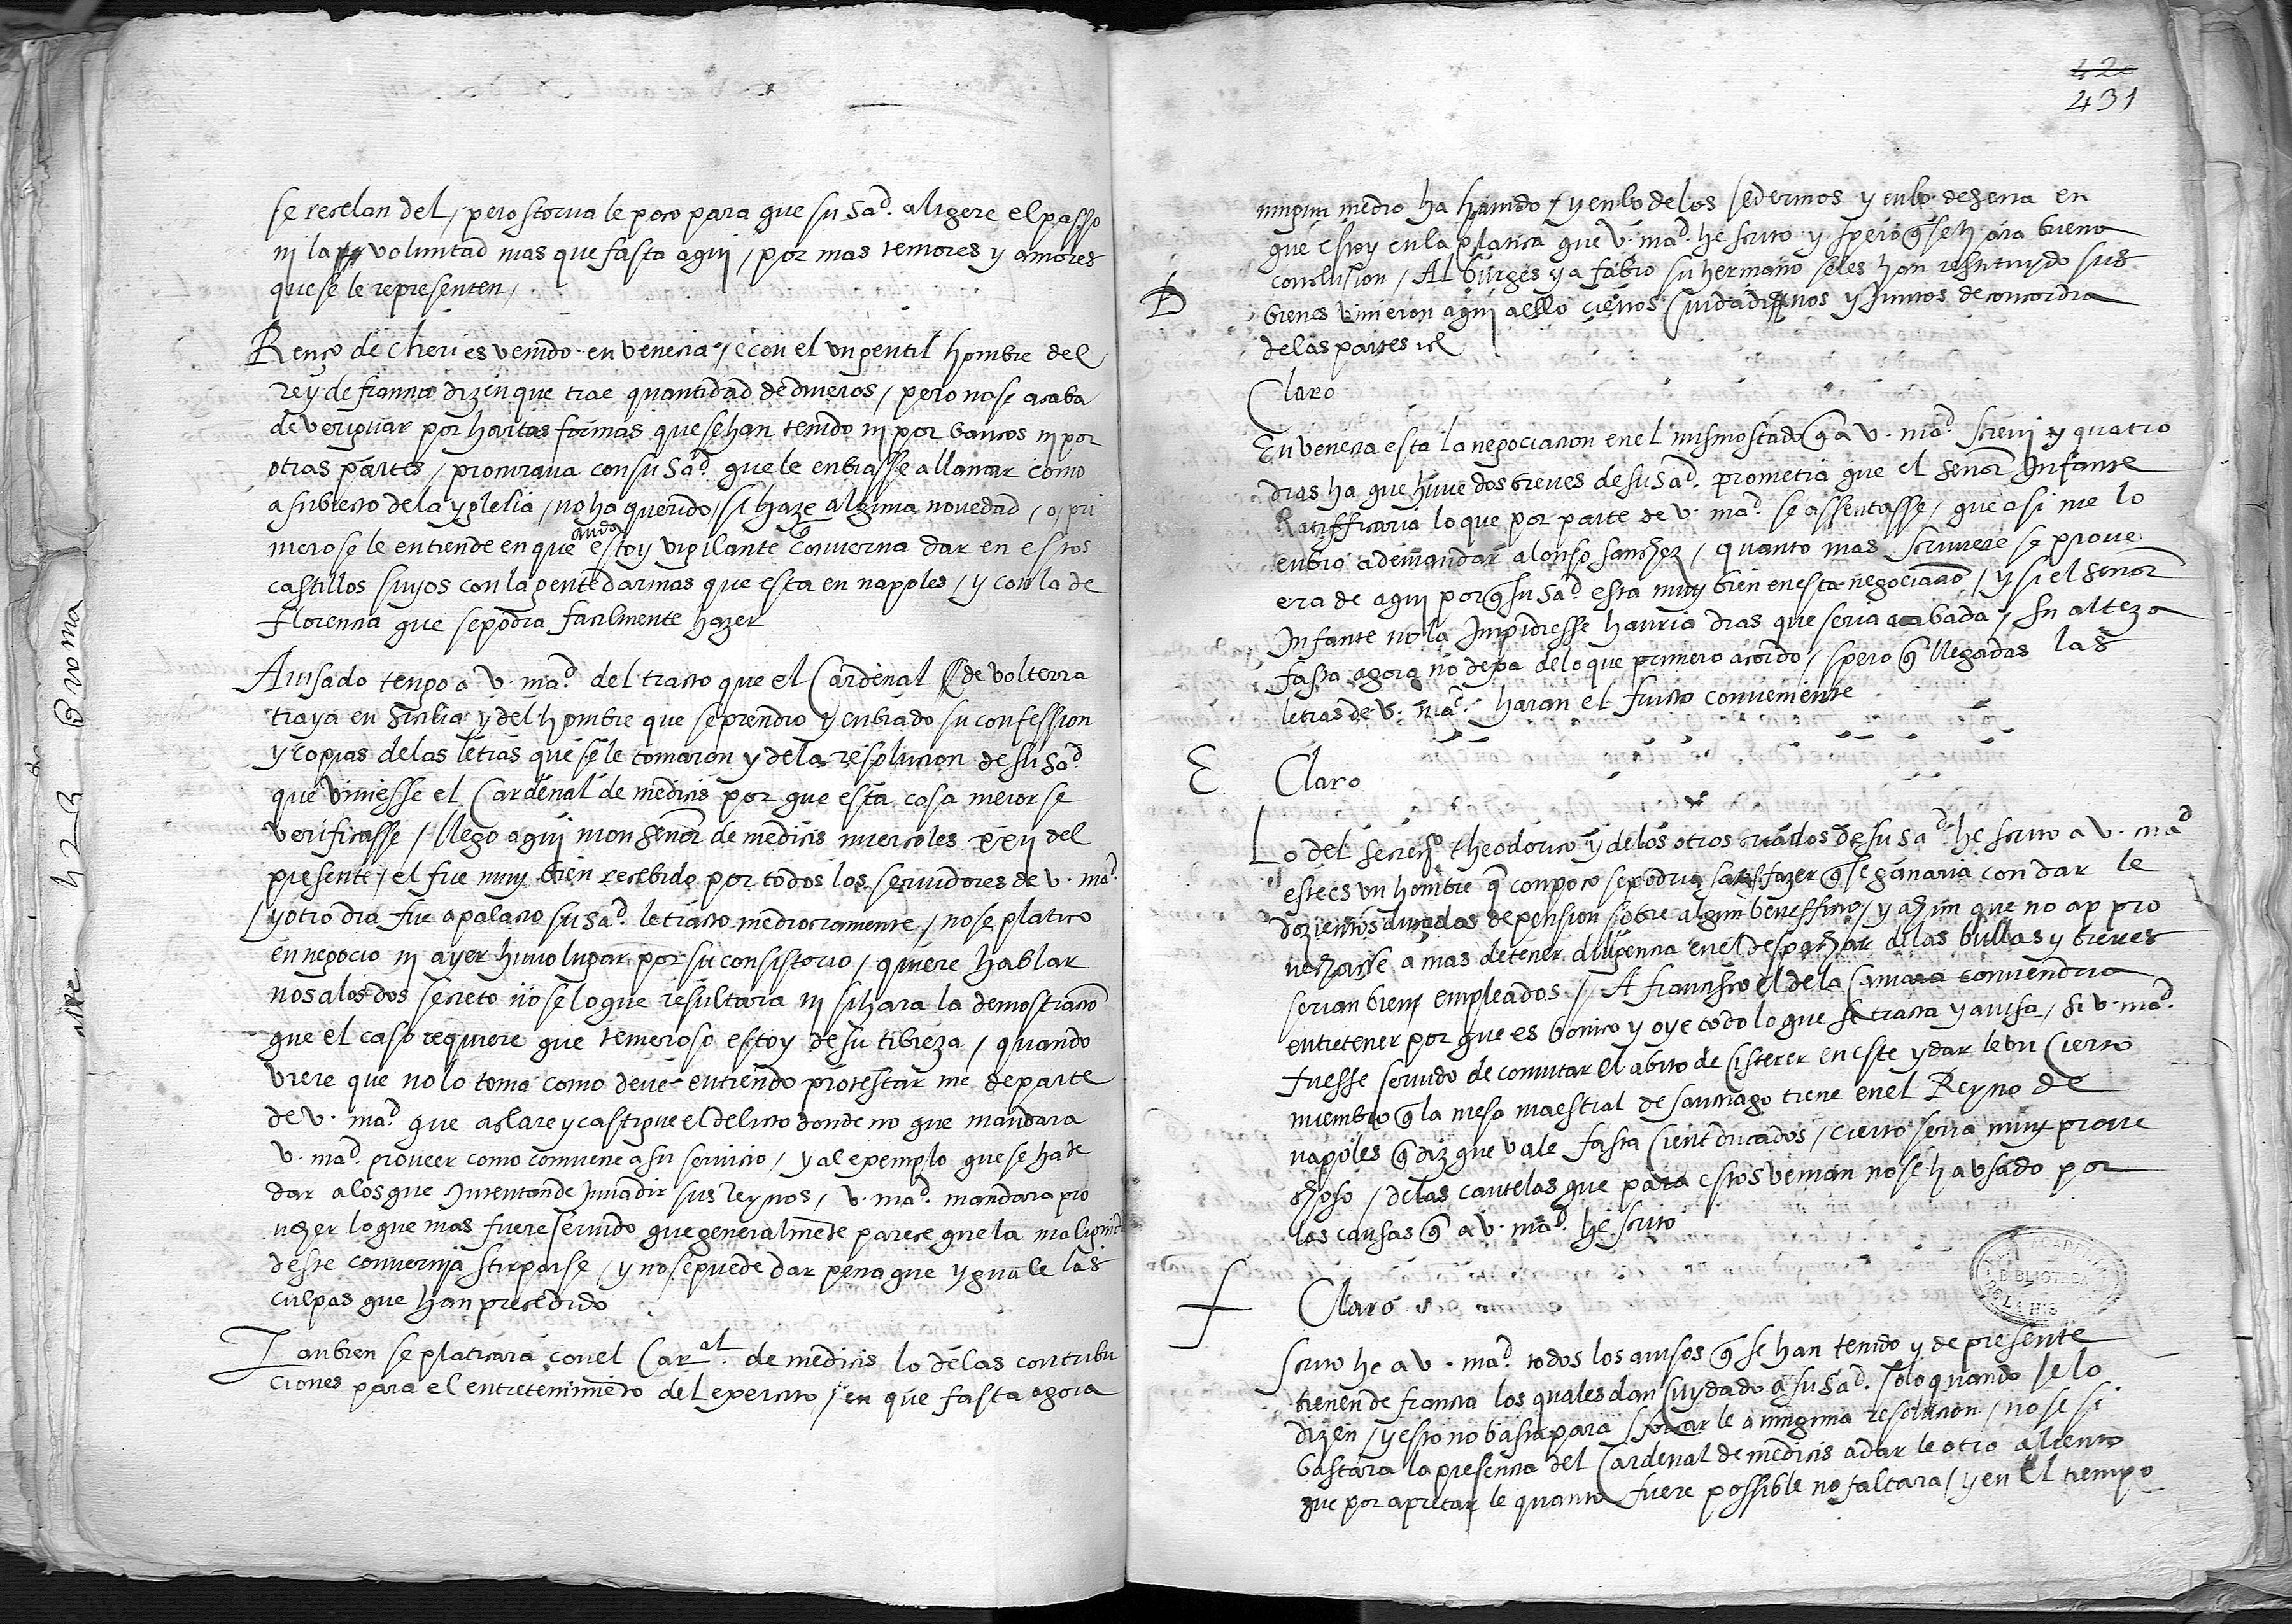 se recelan del / pero storua le poco para que su Sad. aligere el passo
ni la voluntad mas que fasta aqui / por mas temores y amores
que se le representen /
Renço de cheri es venido en venecia / e con el un gentil hombre del
rey de francia dizen que trae quantidad de dineros / pero no se acaba
de veriguar por hartas formas que se han tenido ni por bancos ni por
otras partes / procuraua con su Sad. que le enbiasse a llamar como
a subiecto de la yglesia / no ha querido / si haze alguna nouedad / o pri
mero se le entiende en que anda estoy vigilante conuerna dar en estos
castillos suyos con la gente darmas que esta en napoles / y con la de
florencia que se podra facilmente hazer
Auisado tengo a v. mad. del tracto que el Cardenal de volterra
traya en Sicilia y del hombre que se prendio y enbiado su confession
y copias de las letras que se le tomaron y de la resolucion de su Sad.
que viniesse el Cardenal de medicis por que esta cosa meior se
verificasse / llego aqui mon señor de medicis miercoles xxij del
presente / el fue muy bien recebido por todos los seruidores de v. mad.
y otro dia fue a palacio su Sad. le tracto mediocramente / no se platico
en negocio ni ayer huuo lugar por su consistorio / quiere hablar
nos a los dos secreto no se lo que resultara ni si hara la demostracion
que el caso requiere que temeroso estoy de su tibieza / quando
viere que no lo toma como deue entiendo protestar me de parte
de v. mad. que aclare y castigue el delicto donde no que mandara
v. mad. proueer como conuiene a su seruicio / y al exemplo que se ha de
dar a los que Intentan de Inuadir sus reynos / v. mad. mandara pro
ueher lo que mas fuere seruido que generalmente parece que la malignid
deste conuernia stirparse / y no se puede dar pena que yguale las
culpas que han precedido
Tanbien se platicara con el Caral. de medicis lo de las contribu
ciones para el entretenimiento del exercito / en que fasta agora
420
431
ningun medio ha hauido / y en lo de los sederinos y en lo de sena en
que estoy en la platica que v. mad. he scrito y spero que se hara buena
conclusion / Al burges y a fabio su hermano se les han restituydo sus
D
bienes vinieron aqui a ello ciertos Ciudadinos y Juntos de concordia
de las partes
Claro
En venecia esta la negociacion en el mismo stado que a v. mad. screui y quatro
dias ha que huue dos breues de su Sad. prometia que el señor Infante
Ratifficaria lo que por parte de v. mad. se assentasse / que asi me lo
enbio a demandar alonso sanchez / quanto mas scriuiere se proue
era de aqui por que su Sad. esta muy bien en esta negociacion / y si el señor
Infante no la Impidiesse hauria dias que seria acabada / su alteza
fasta agora no dexa de lo que primero acordo / spero que llegadas las
letras de v. mad. haran el fructo conueniente
E Claro
Lo del secreto. theodorico y de los otros criados de su Sad. he scrito a v. mad.
este es un hombre que con poco se podria satisfazer que se ganaria con dar le
dozientos ducados de pension sobre algun benefficio / y ahun que no appro
uechasse a mas de tener diligencia en el despachar de las bullas y breues
serian bien empleados / A francisco el de la Camara conuendria
entretener por que es bonico y oye todo lo que se tracta y auisa / si v. mad.
fuesse seruido de comutar el abito de Cistercr en este y dar le un cierto
miembro que la mesa maestral de santiago tiene en el Reyno de
napoles que diz que vale fasta cient ducados / cierto seria muy proue
choso / de las cautelas que para estos venian no se ha usado por
las causas que a v. mad. he scrito
F Claro
Scrito he a v. mad. todos los auisos que se han tenido y de presente
tienen de francia los quales dan cuydado a su Sad. solo quando se lo
dizen / y esto no basta para forcar le a ninguna resolucion / no se si
bastara la presencia del Cardenal de medicis a dar le otro aliento
que por apretar le quanto fuere possible no faltara / y en el tiempo
BIBLIOTECA
DE LA HIS